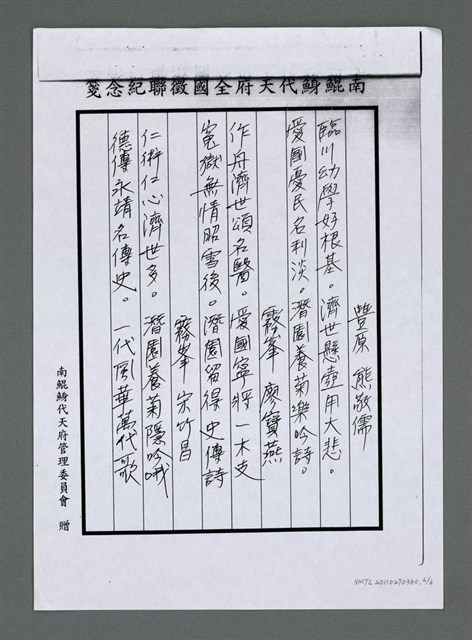 南鯤鯓代天府全國徵聯紀念箋
豐原 熊敬儒
臨川幼學好根基。濟世懸壺用大悲。
愛國憂民名利淡。潛園養菊樂吟詩。
霧峯 廖寶燕
作舟濟世頌名醫。愛國寧將一木支
冤獄無情昭雪後。潛園留得史傳詩
霧峯 宋竹昌
仁術仁心濟世多。潛園養菊隱吟哦
德傳永靖名傳史。一代風華萬代歌
南鯤鯓代天府管理委員會 贈
NMTL20110270360, 6/6